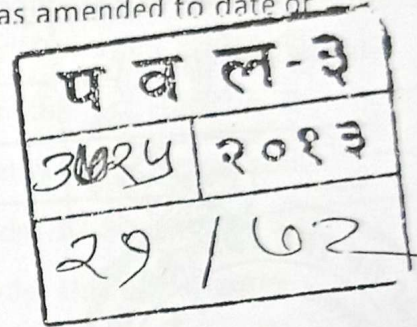 as amended to date or
प व ल - ३
२०१३
२१ / ७२